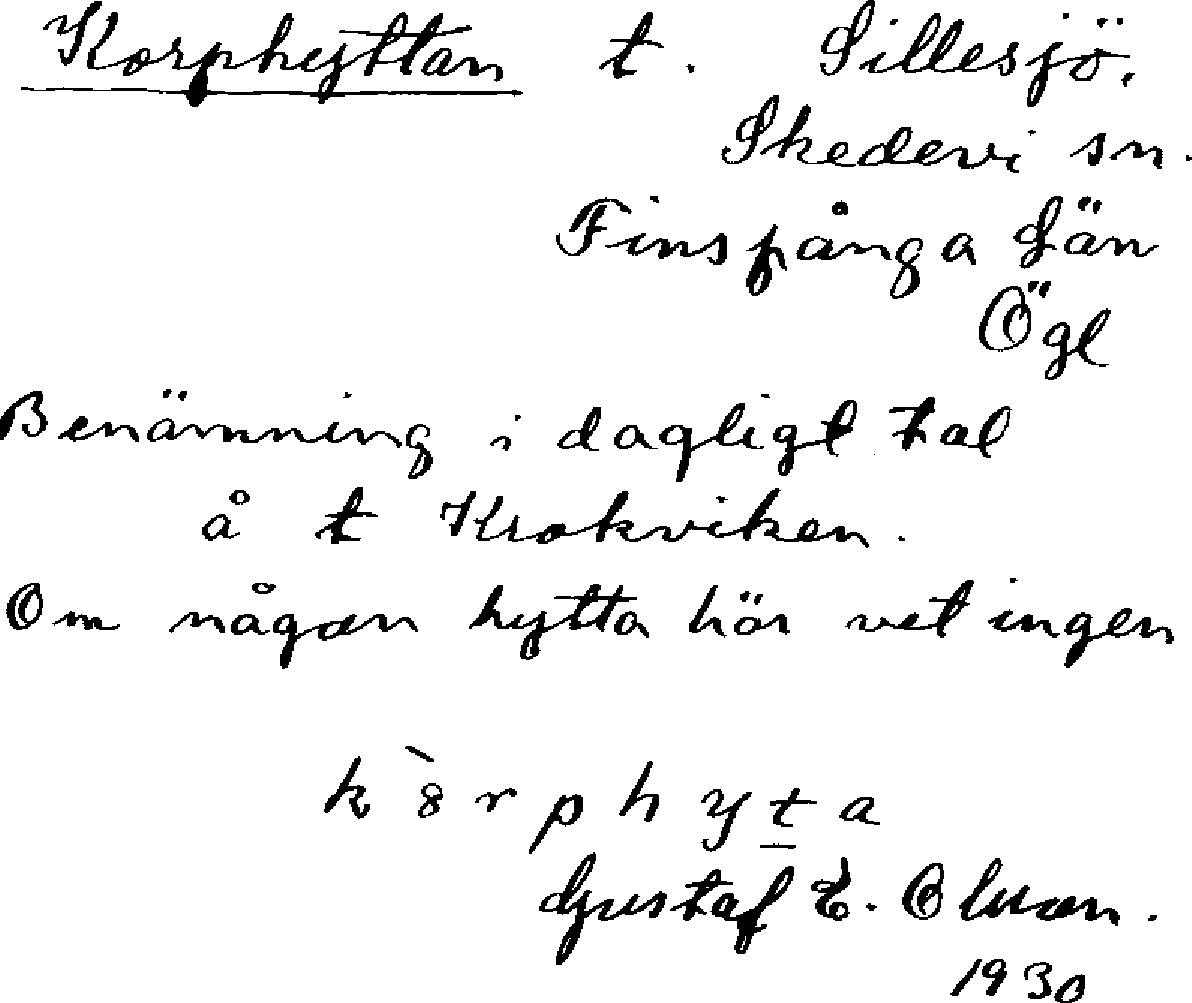 Korphyttan t. Sillesjö,
Skedevi sn.
Finspånga län
Ögl
Benämning i dagligt tal
å t Krokviken.
Om någon hytta här vet ingen
k 8̀ r p h y t̲ a
Gustaf E. Olsson.
1930